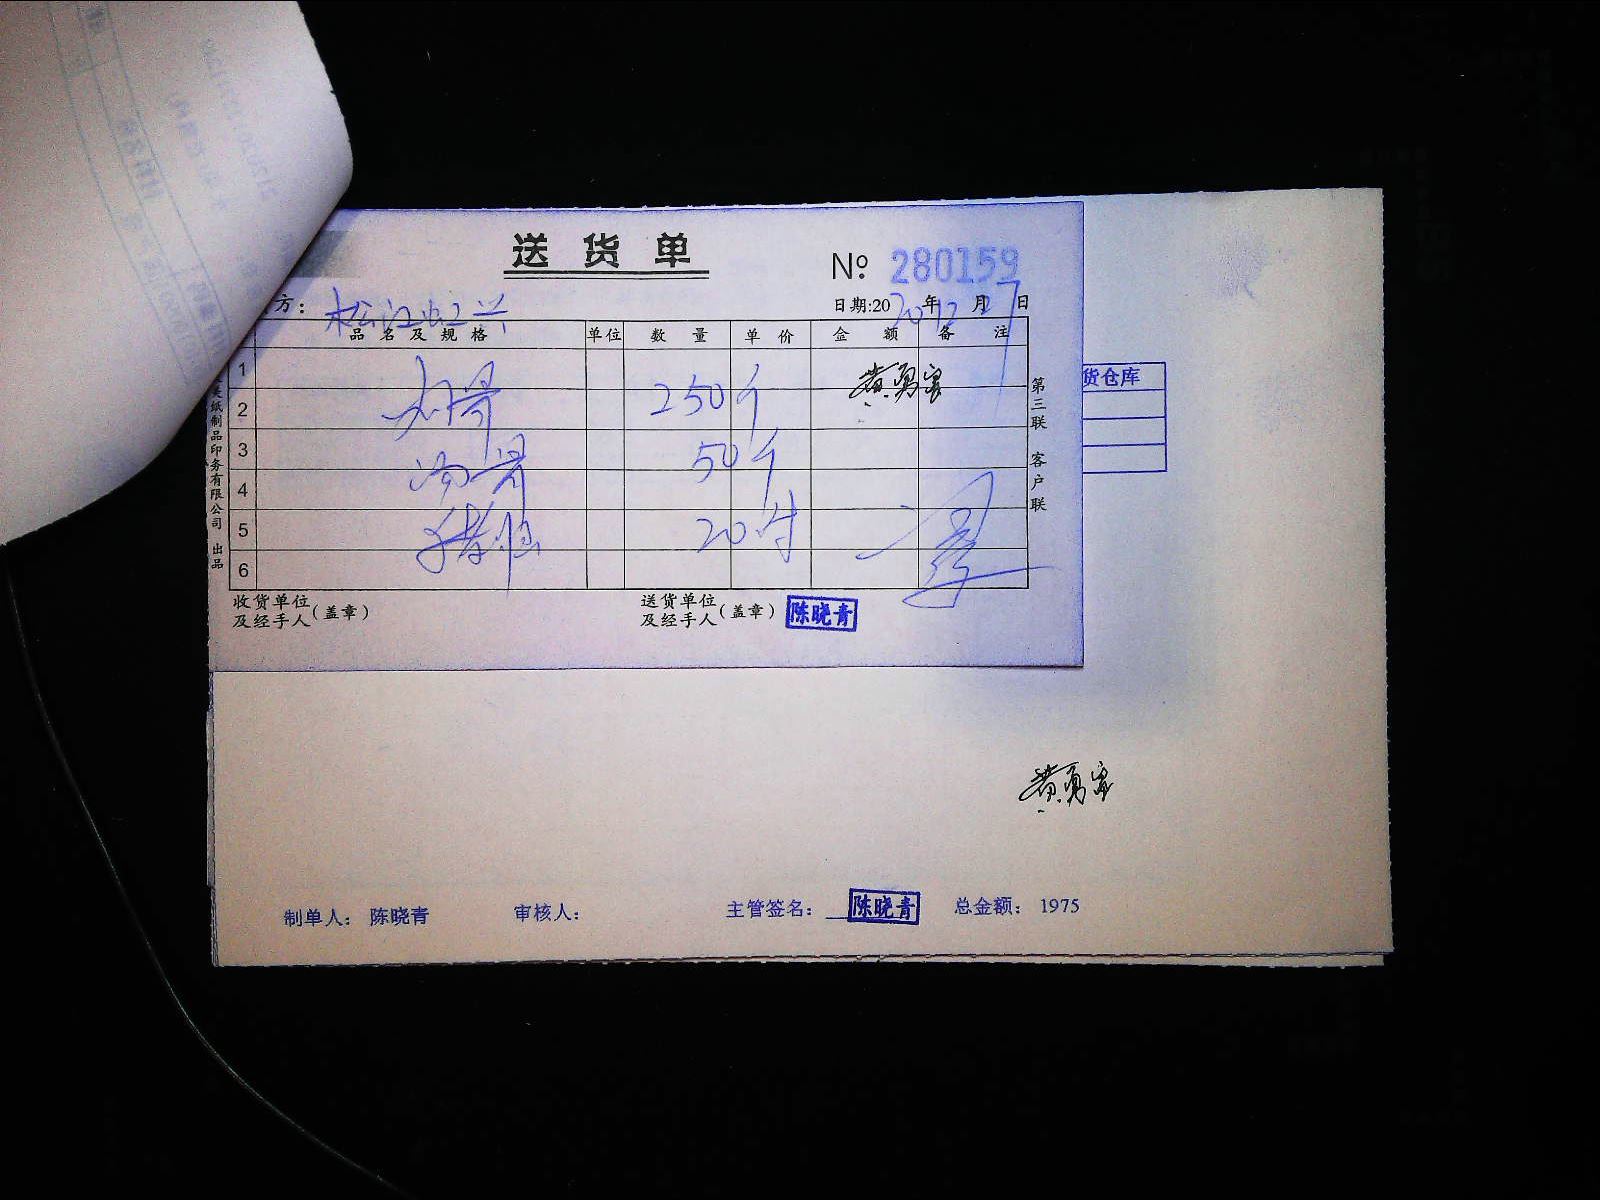 送货单
№ 280159
方: 松江
日期:2020年12月27日
品名及规格 单位 数量 单价 金额 备注
1
黄勇富
2 250斤
3 汤骨 50斤
4
5 20付
6
第三联 客户联
纸制品印务有限公司 出品
收货单位及经手人(盖章)
送货单位及经手人(盖章) 陈晓青
货仓库
黄勇富
制单人: 陈晓青 审核人: 主管签名: 陈晓青 总金额: 1975